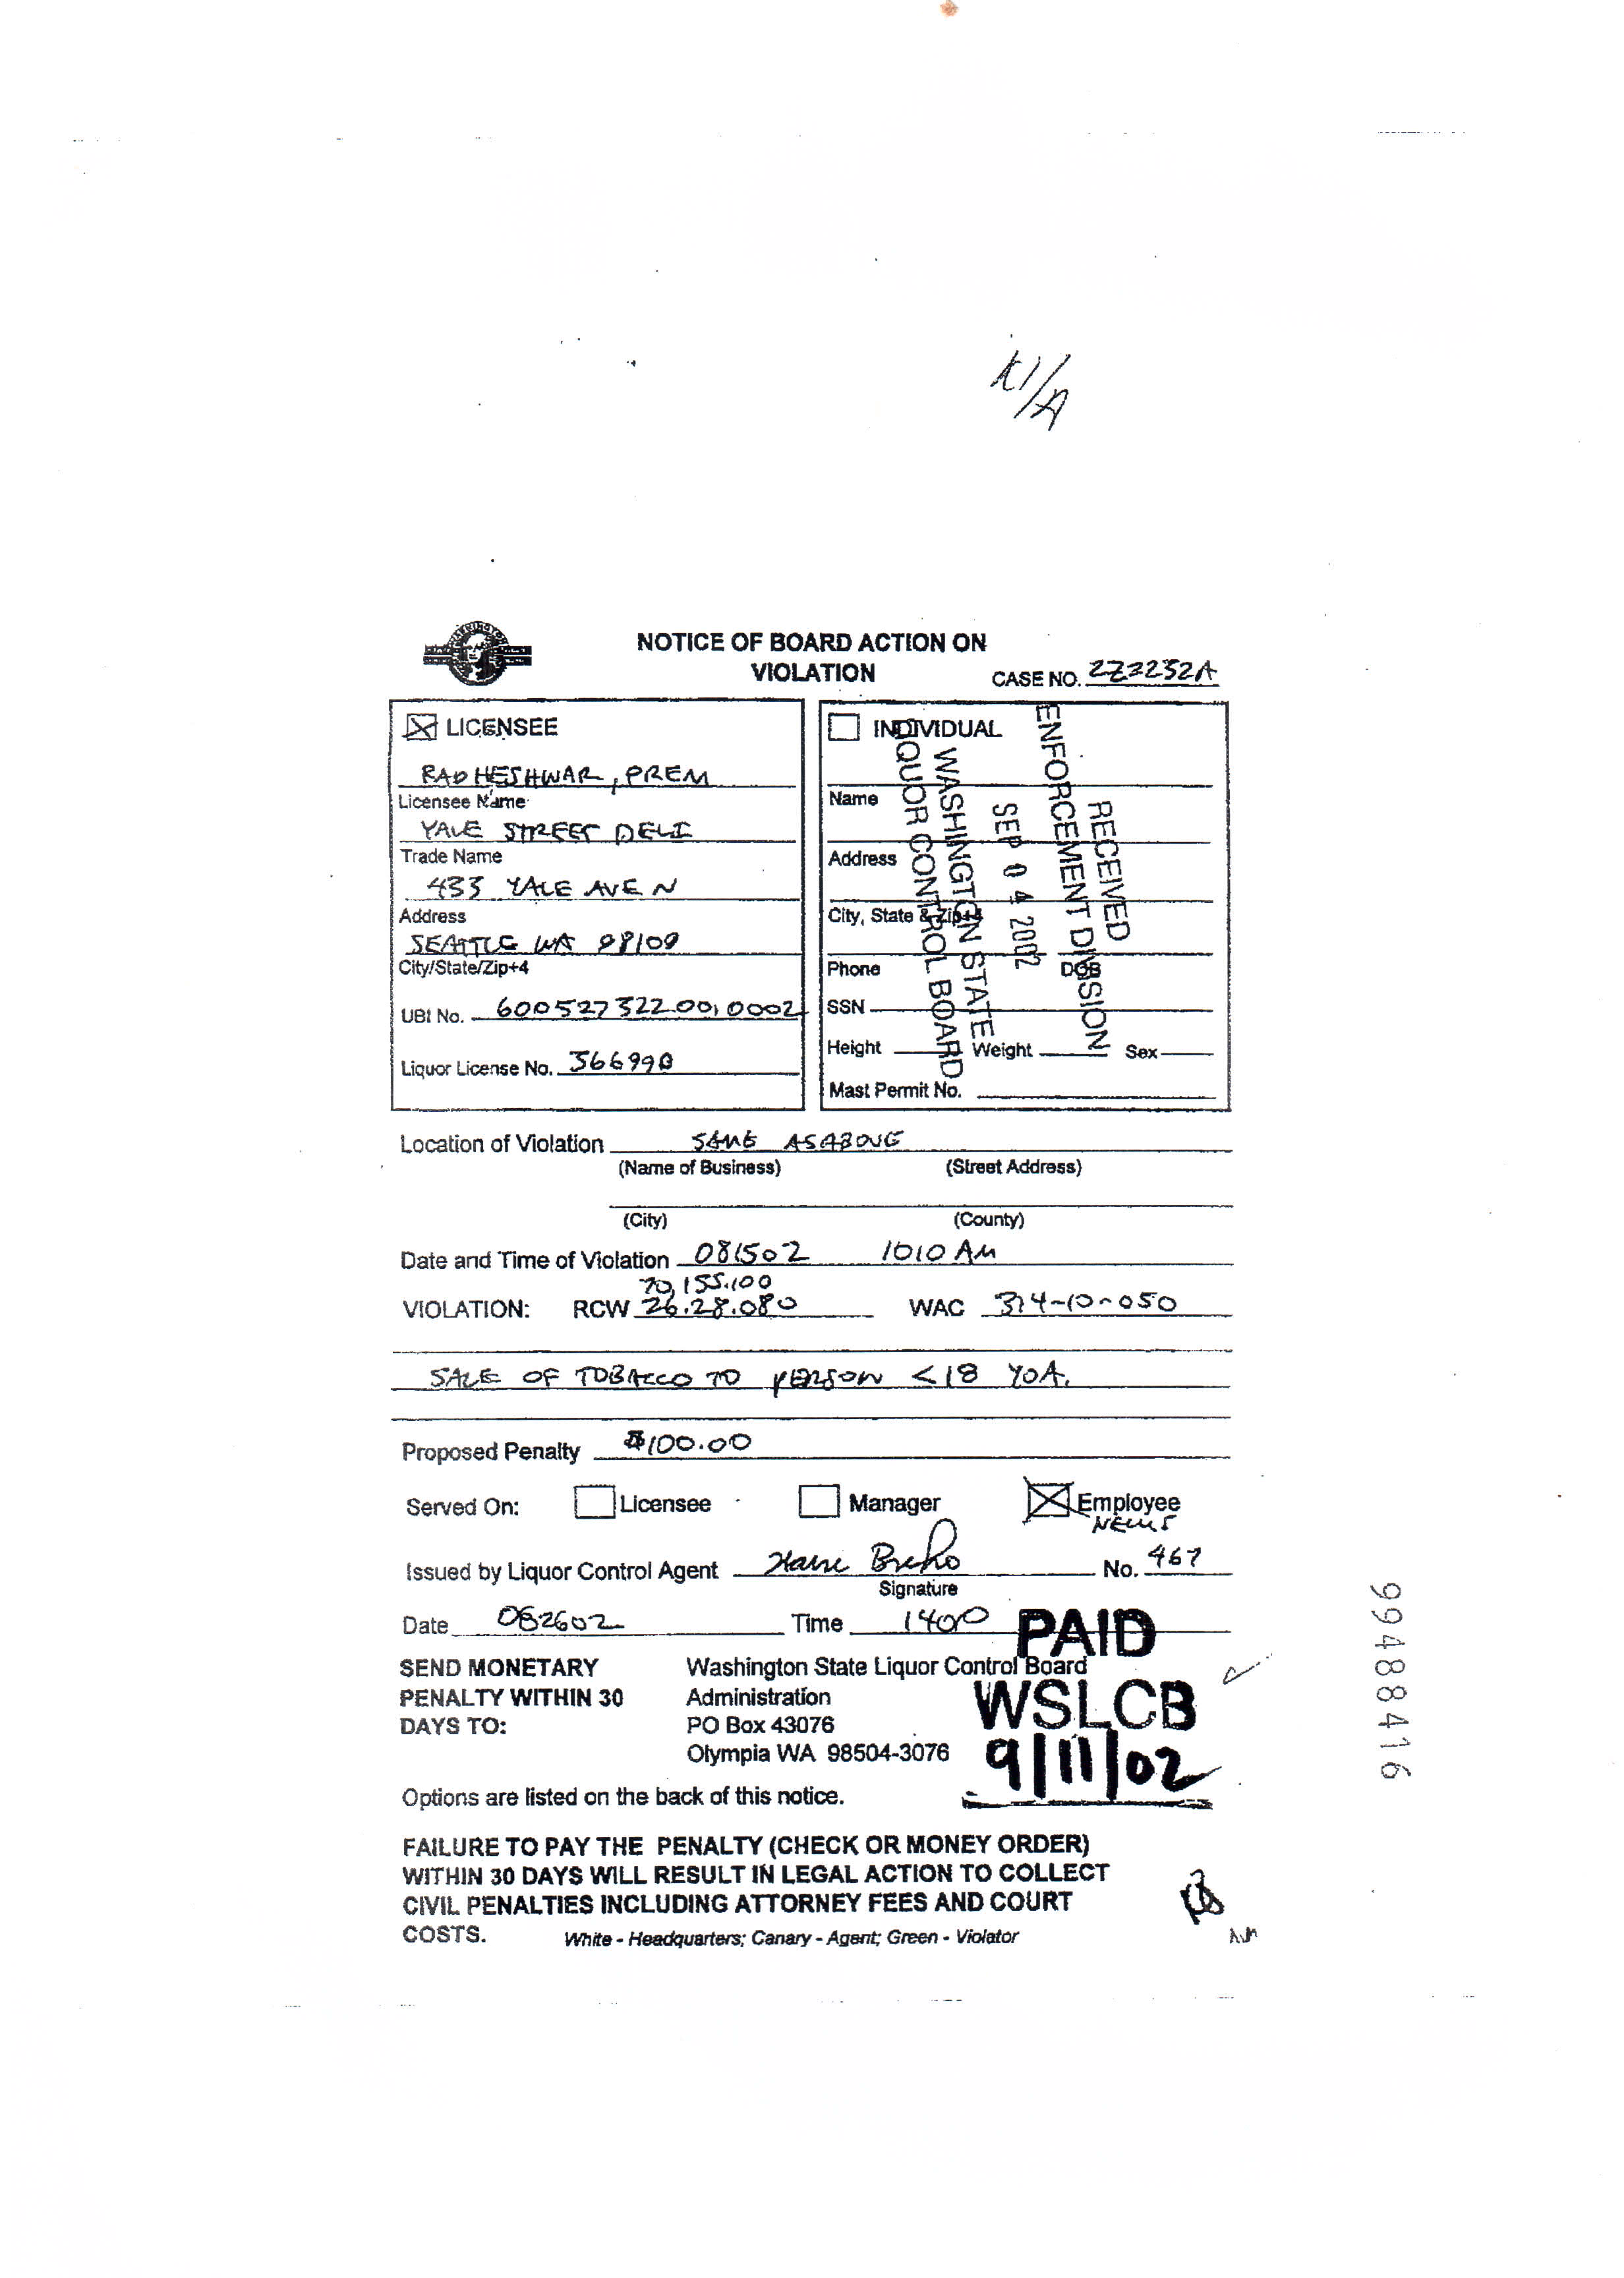 NOTICE OF BOARD ACTION ON
VIOLATION
CASE NO. 2Z2232A
LICENSEE
RADHESHWAR, PREM
Licensee Name
YALE STREET DELI
Trade Name
433 YALE AVE N
Address
SEATTLE WA 98109
City/State/Zip+4
UBI No. 600527322 001 0002
Liquor License No. 366990
INDIVIDUAL
Name
Address
City, State & Zip+4
Phone DOB
SSN
Height Weight Sex
Mast Permit No.
RECEIVED
ENFORCEMENT DIVISION
SEP 04 2002
WASHINGTON STATE
LIQUOR CONTROL BOARD
Location of Violation SAME AS ABOVE
(Name of Business) (Street Address)
(City) (County)
Date and Time of Violation 081502 1010 AM
70,155.100
VIOLATION: RCW 26.28.080 WAC 314-10-050
SALE OF TOBACCO TO PERSON <18 YOA.
Proposed Penalty $100.00
Served On: Licensee Manager Employee
Issued by Liquor Control Agent No. 467
Signature
Date 082602 Time 1400
PAID
WSLCB
9/11/02
SEND MONETARY
PENALTY WITHIN 30
DAYS TO:
Washington State Liquor Control Board
Administration
PO Box 43076
Olympia WA 98504-3076
Options are listed on the back of this notice.
FAILURE TO PAY THE PENALTY (CHECK OR MONEY ORDER)
WITHIN 30 DAYS WILL RESULT IN LEGAL ACTION TO COLLECT
CIVIL PENALTIES INCLUDING ATTORNEY FEES AND COURT
COSTS.
White - Headquarters; Canary - Agent; Green - Violator
99488416